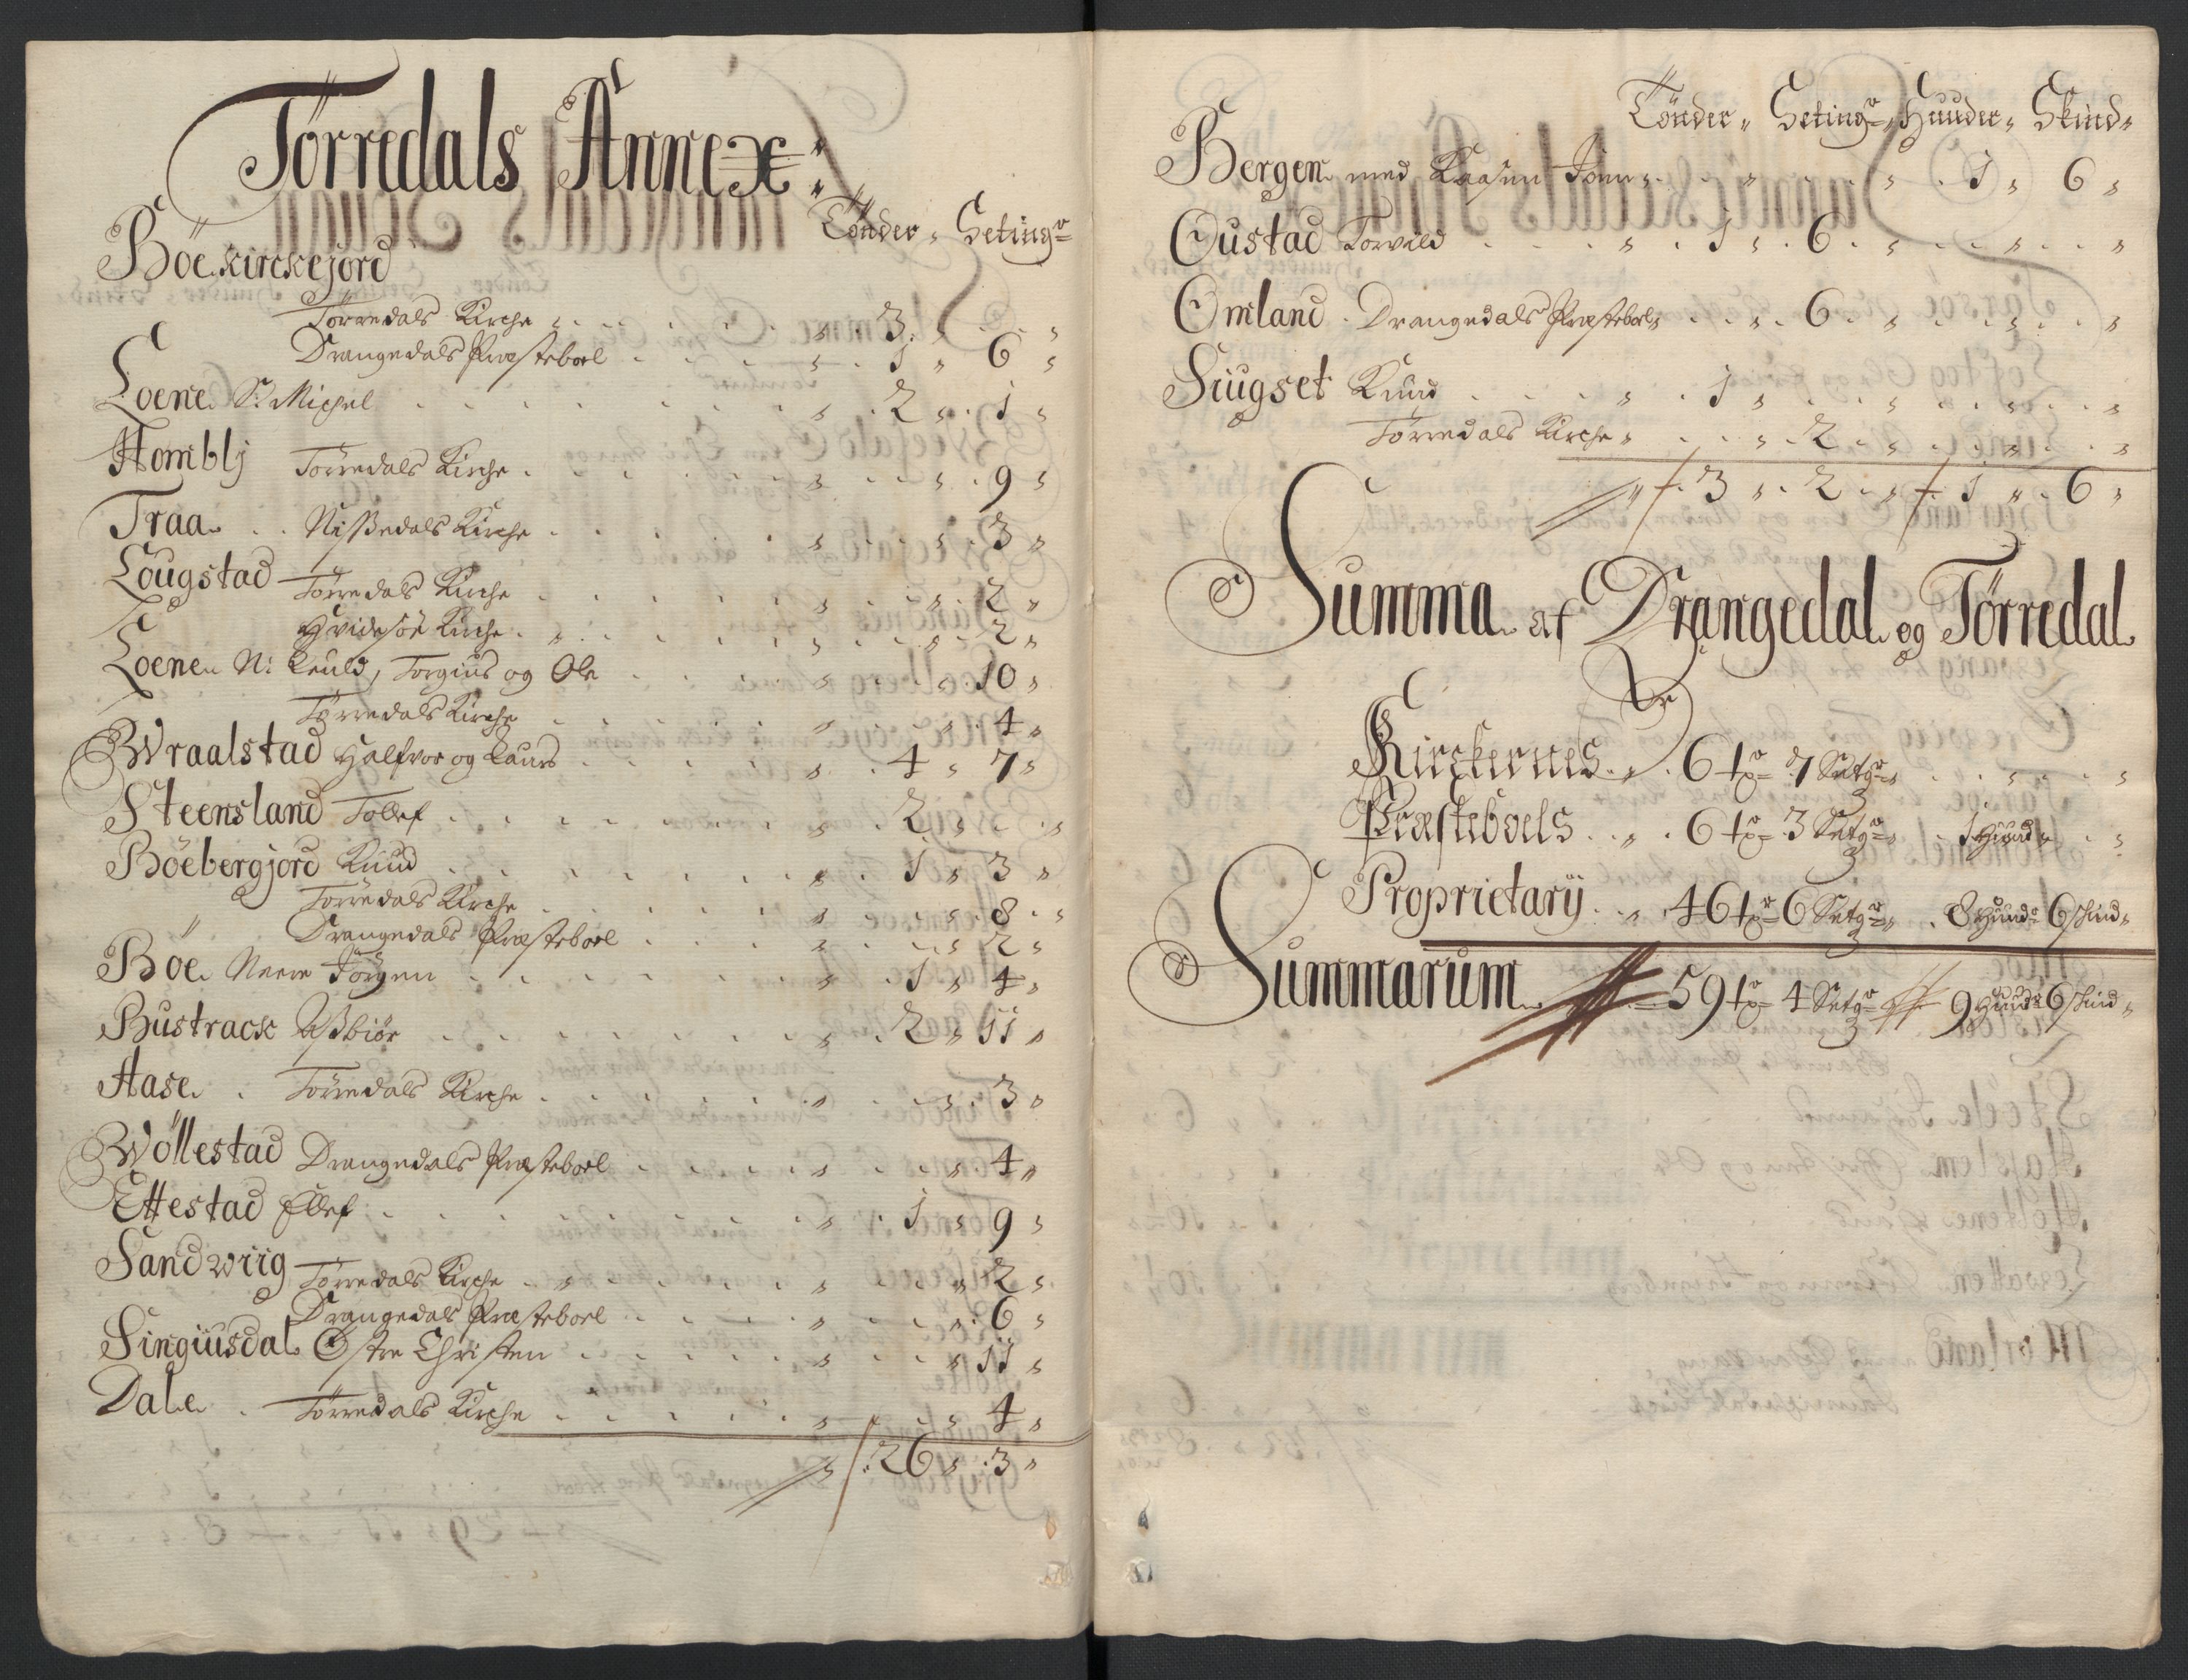 Törredals Annex:
Tönder „ Setingr
Böe kirckejord
Törredals Kirche „ 3 „ „
Drangedals Præsteboel „ 1 „ 6 „
Loene S: Michel „ 2 „ 1 „
Homblj Törredals Kirche „ „ 9 „
Traa Nißedals Kirche „ „ 3 „
Lougstad Törredals Kirche „ „ 2 „
Hvidesöe Kirche „ „ 2 „
Loene N: Leuld, Torgius og Ole „ „ 10 „
Törredals Kirche „ „ 4 „
Wraalstad Halfvor og Laurs „ 4 „ 7 „
Steensland Tollef „ 2 „ „
Böebergjord Knud „ 1 „ 3 „
Törredals Kirche „ „ 8 „
Drangedals Præsteboel „ „ 2 „
Böe Neere Jörgen „ 1 „ 4 „
Bustrack Aßbiör „ 2 „ 11 „
Aase Törredals Kirche „ „ 3 „
Wöllestad Drangedals Præsteboel „ „ 4 „
Ettestad Ellef „ 1 „ 9 „
Sandwiig Törredals Kirche „ „ 2 „
Drangedals Præsteboel „ „ 6 „
Singiusdal Östre Christen „ „ 11 „
Dale Törredals Kirche „ „ 4 „
„ 26 „ 3 „
Tönder „ Setingr „ Huuder „ Skind „
Bergen med Kaasen Jönn „ „ „ 1 „ 6 „
Oustad Torvald „ 1 „ 6 „ „ „
Omland Drangedals Præsteboel „ „ 6 „ „ „
Siugset Knud „ 1 „ „ „ „
Törredals Kirche „ „ 2 „ „ „
„ 3 „ 2 „ 1 „ 6 „
Summa af Drangedal og Törredal
Er
Kirckernes „ 6 tr 7 Setgr „ „ „
Præsteboels „ 6 tr 3 Setgr „ 1 Huud „ „
Proprietarij „ 46 tr 6 Setgr „ 8 Huudr 6 skind „
Summarum 59 tr 4 Setgr 9 Huudr 6 skind „